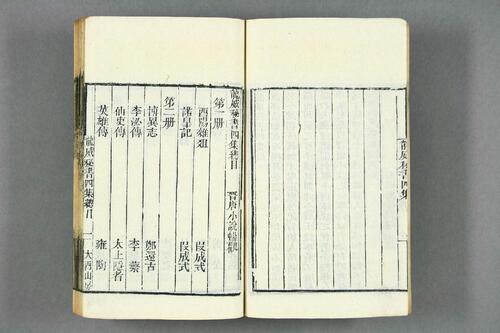 龍威秘書四集總目
晉唐小說暢觀
第一冊
酉陽雜俎 段成式
諾皋記 段成式
第二冊
博異志 鄭還古
李泌傳 李蘩
仙吏傳 太上隱者
英雄傳 雍陶
龍威秘書四集總目
一
大酉山房
龍威秘書四集